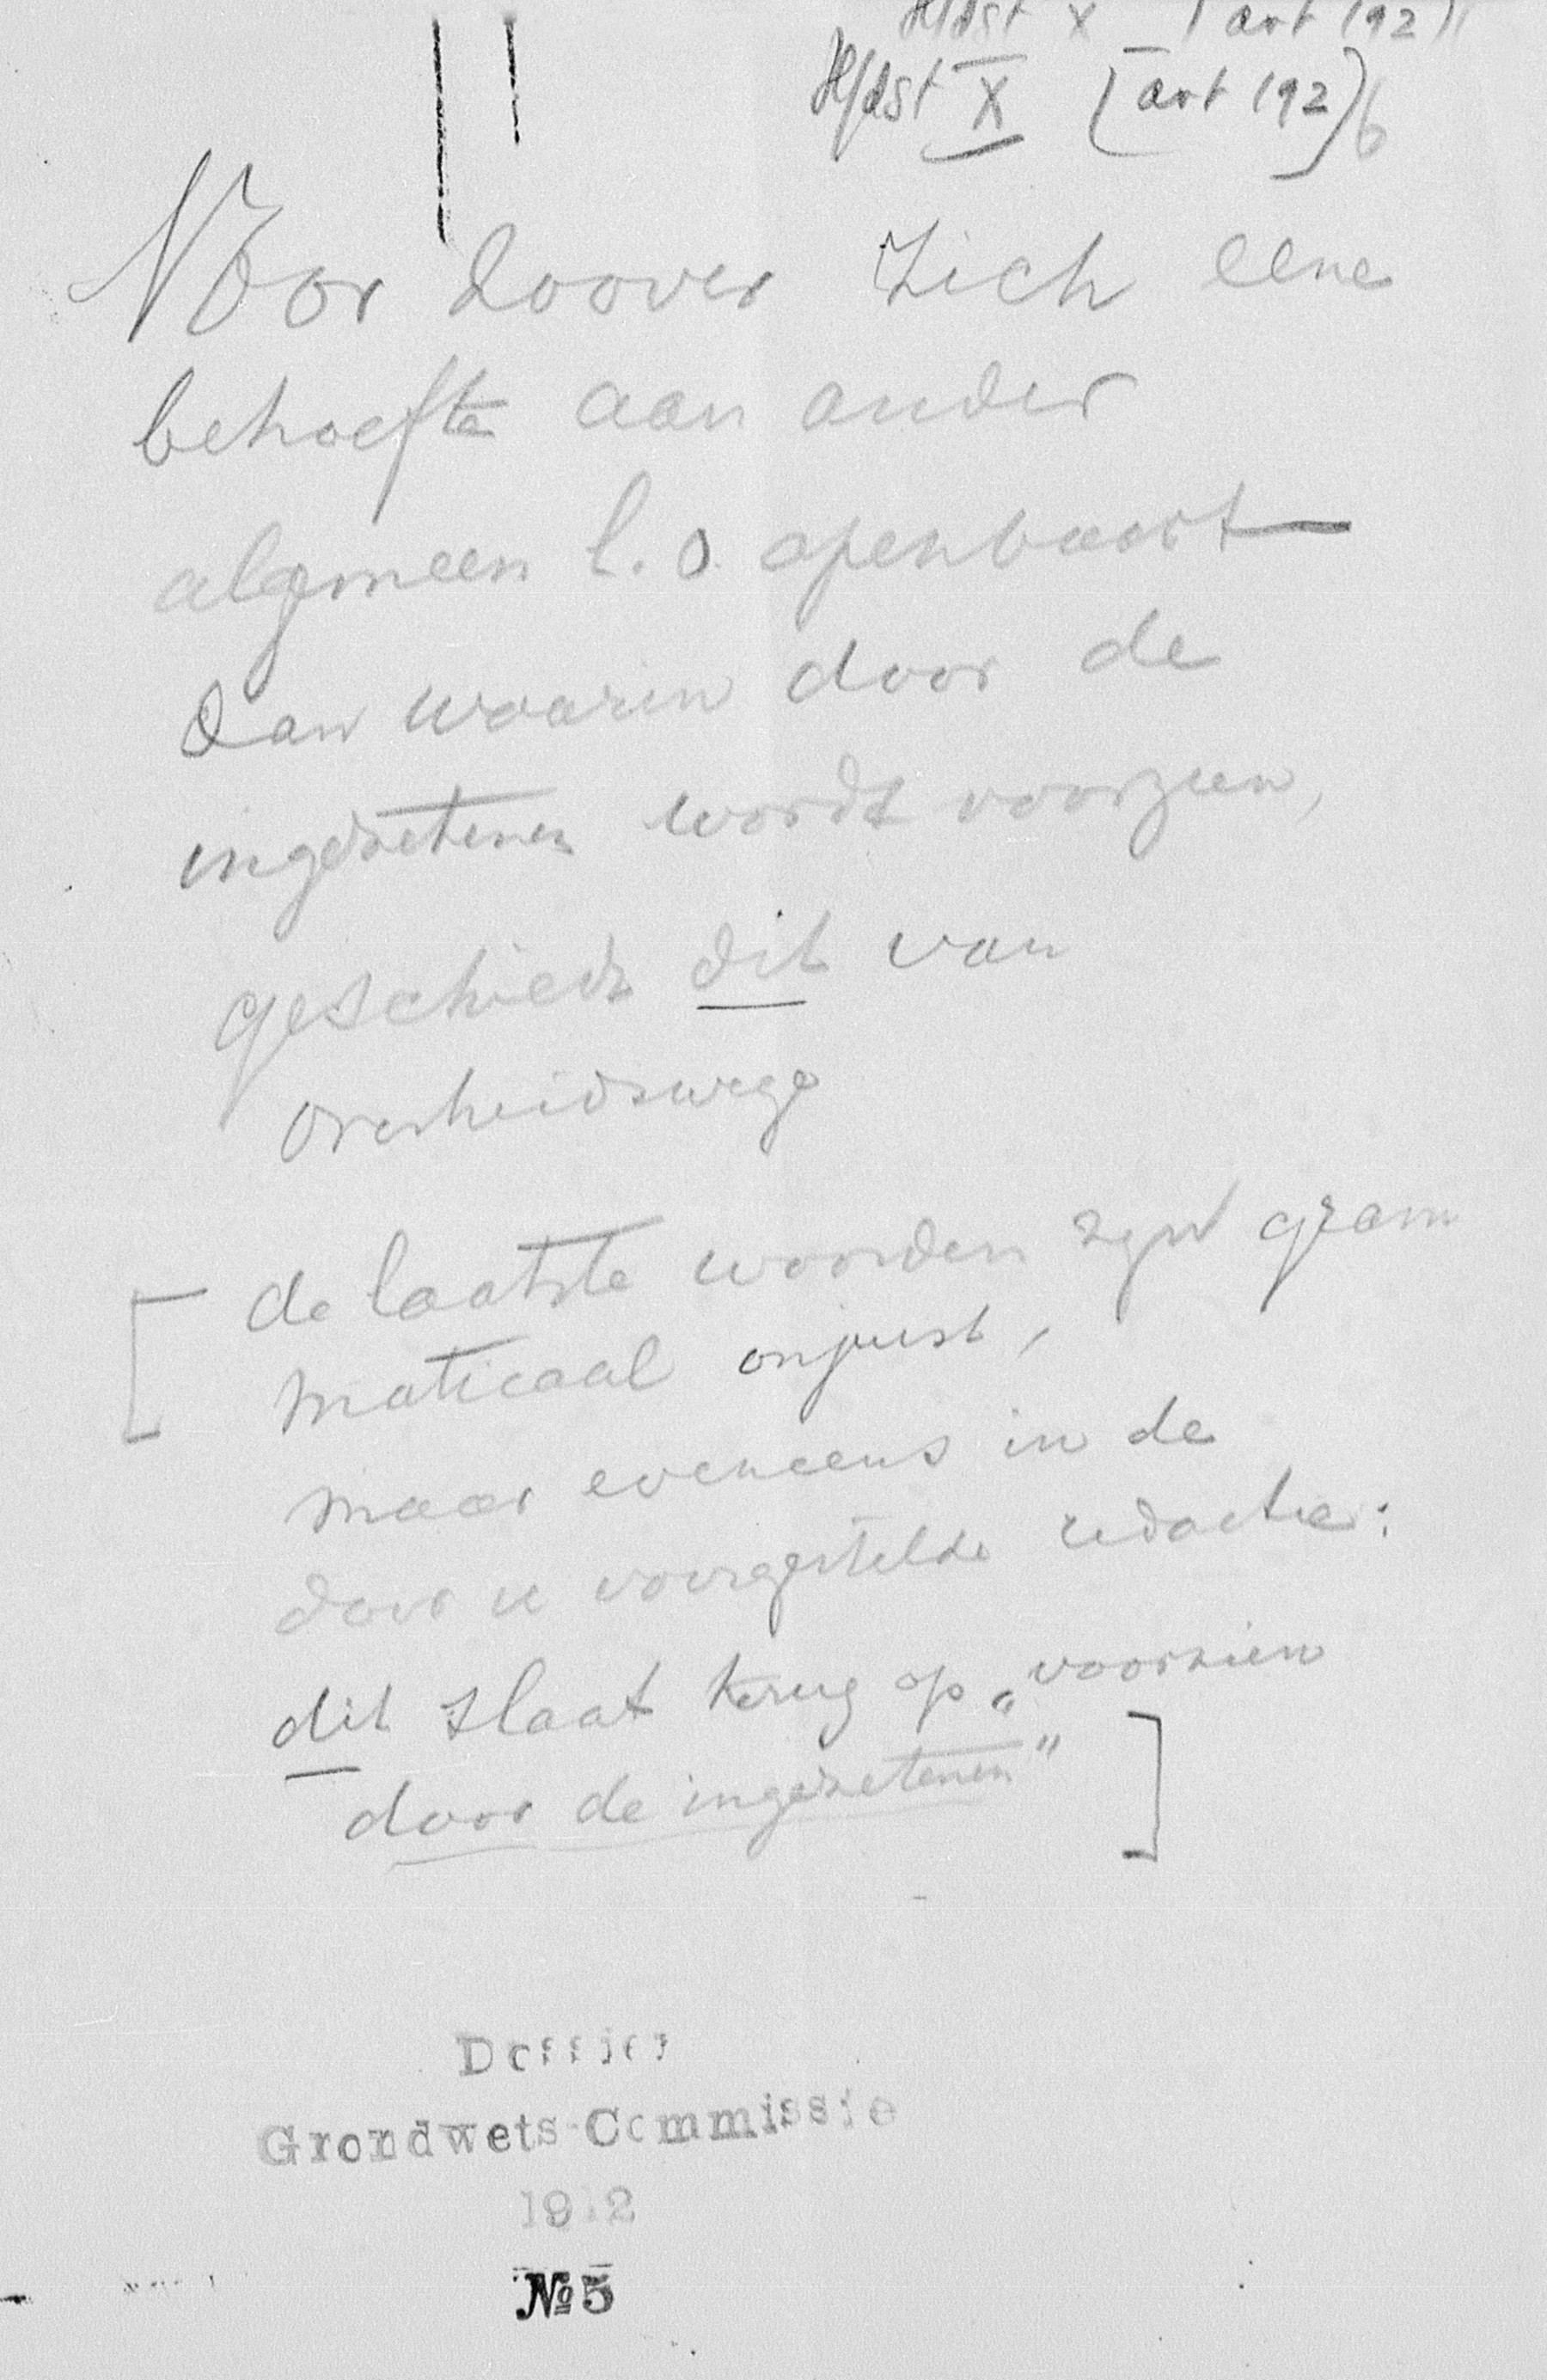 Hfdst X (art 192)
Hfdst X (art 192) b
Voor zoover zich eene
behoefte aan ander
algemeen l.o. openbaart
dan waarin door de
ingezetenen wordt voorzien,
geschiedt dit van
overheidswege
[de laatste woorden zijn gram
maticaal onjuist,
maar eveneens in de
door u voorgestelde redactie:
dit slaat terug op „voorzien
door de ingezetenen"]
Dossier
Grondwets-Commissie
1912
№ 5